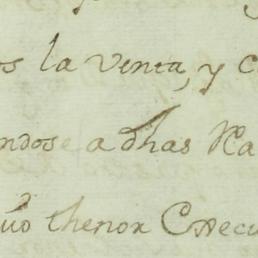 os la venta, y c
ndose a dhas Ha
uo thenor Execu